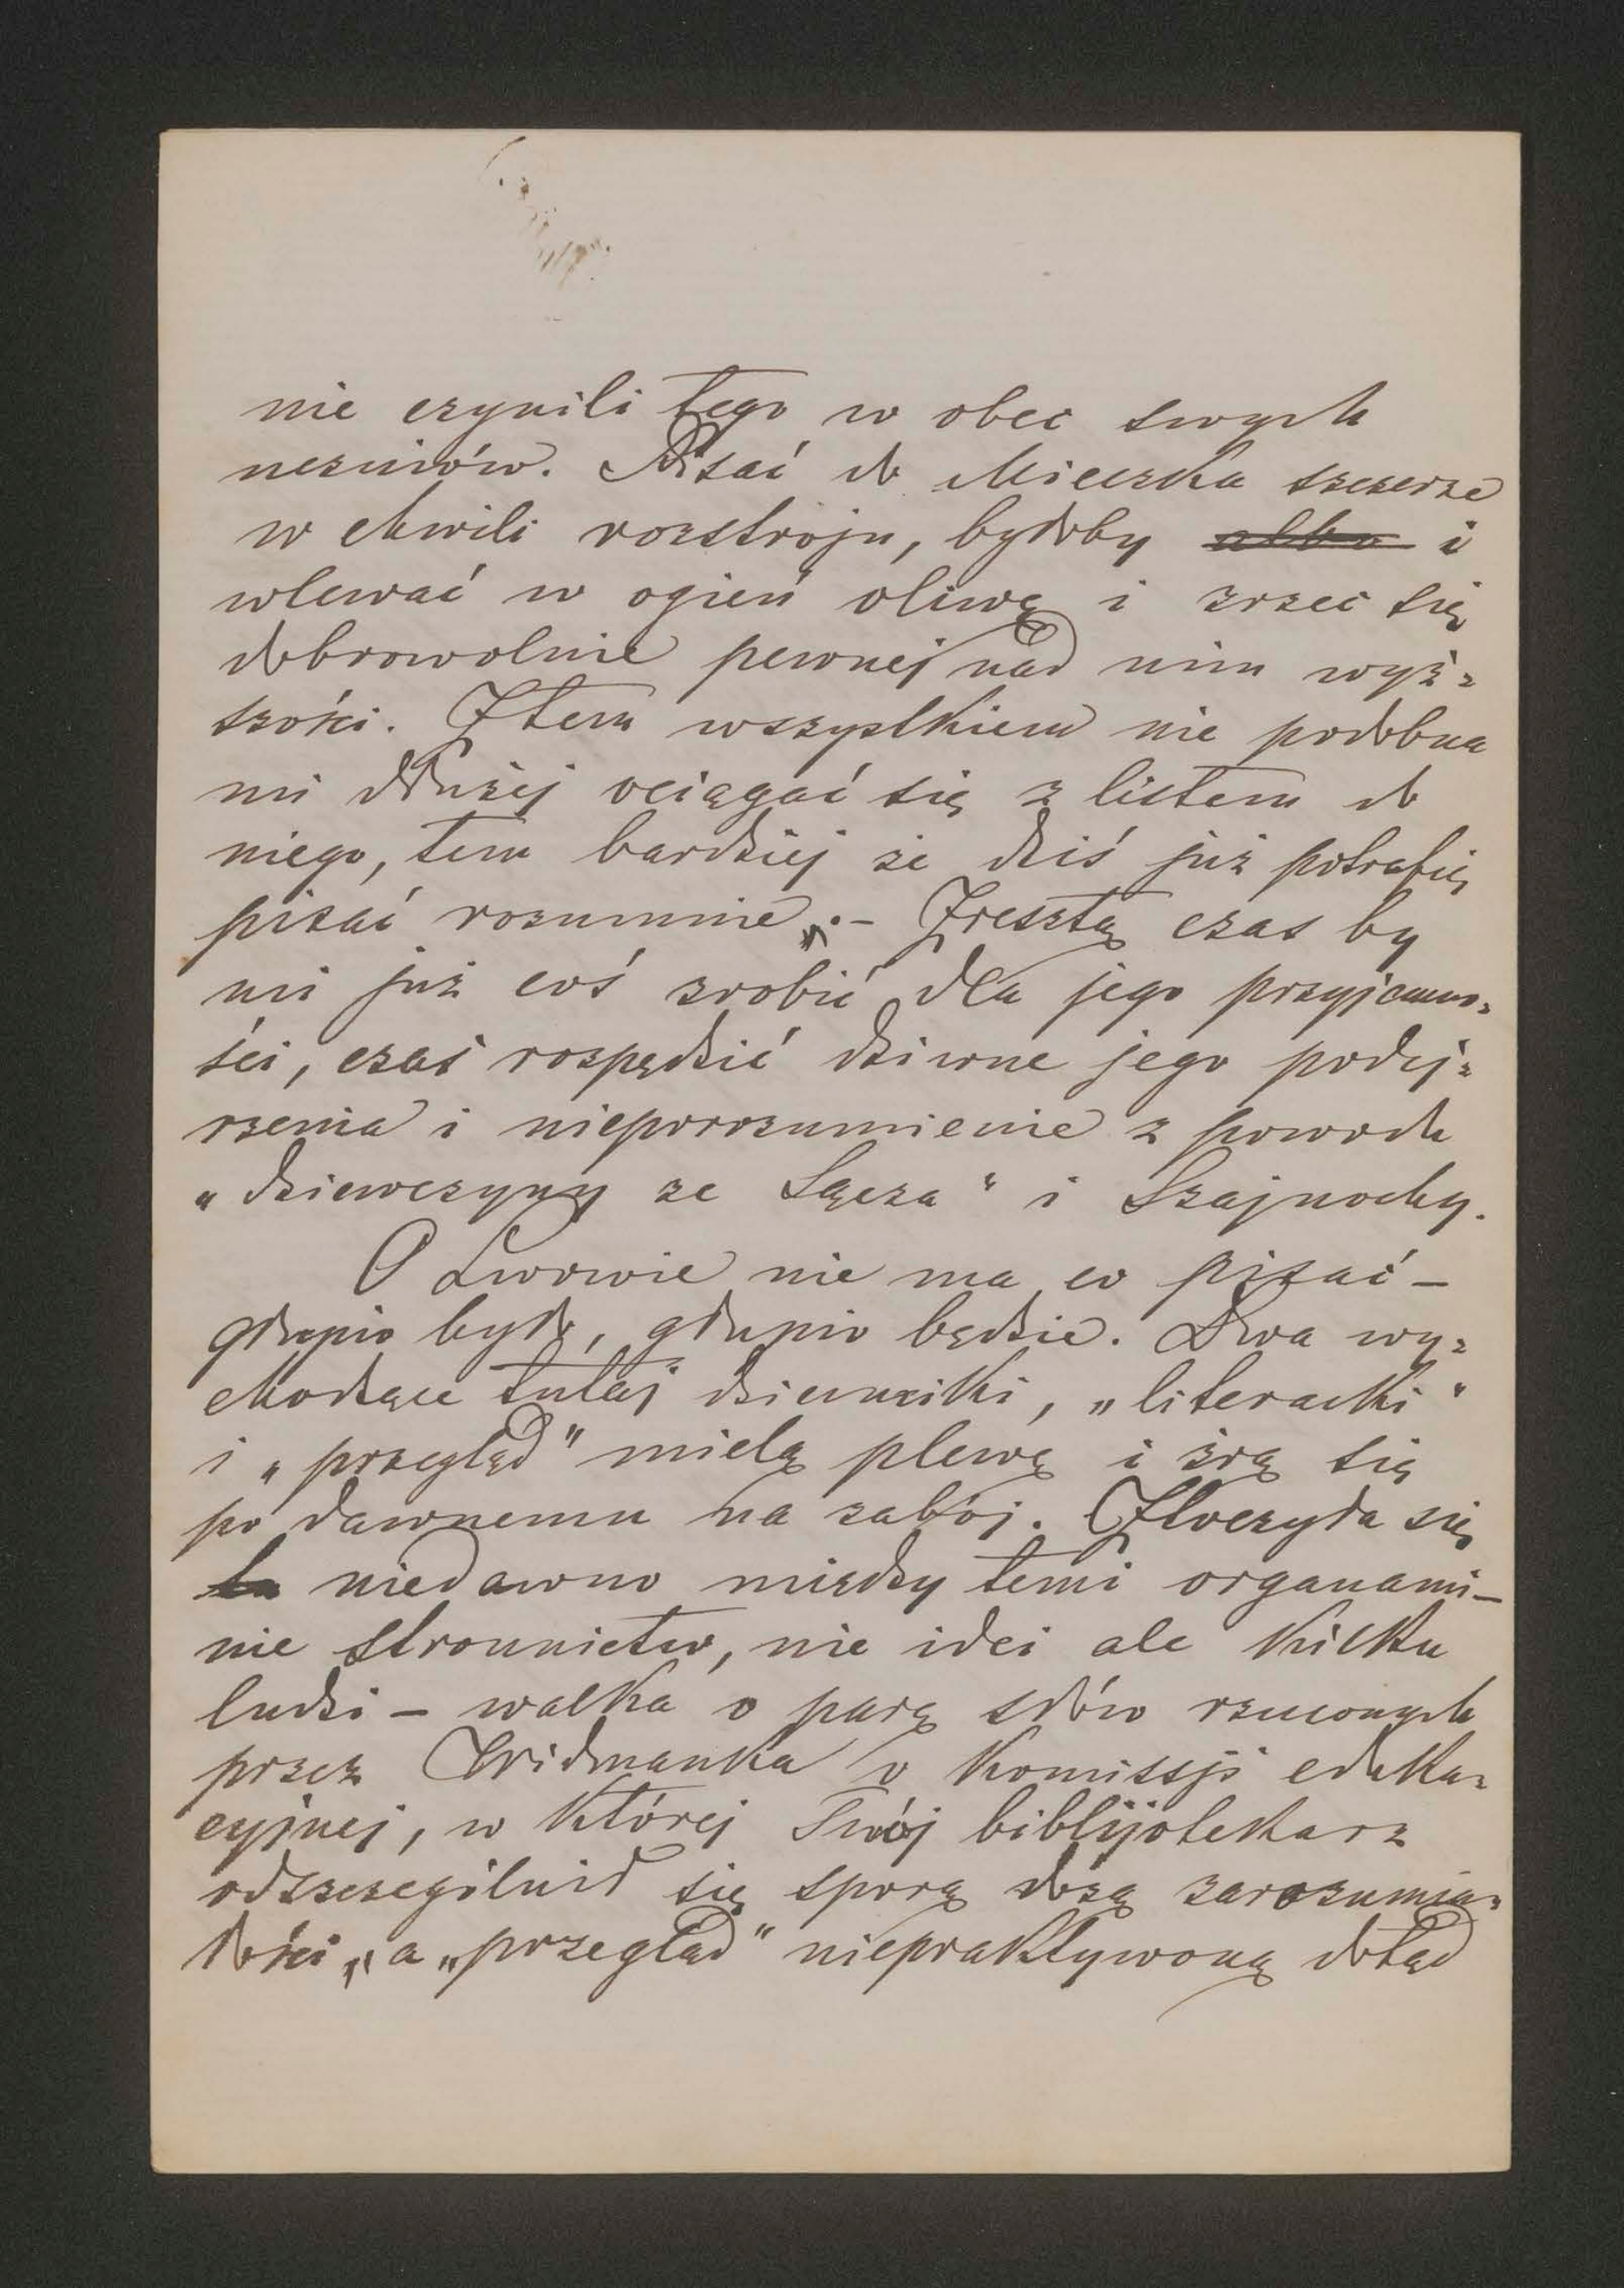 nie czynili tego w obec swych
uczniów. Pisać do Mieczka szczerze
w chwili rozstroju, byłoby albo i
wlewać w ogień oliwę i zrzec się
dobrowolnie pewnej nad nim wyż=
szości. Z tem wszystkiem nie podobna
mi dłużej ociągać się z listem do
niego, tem bardziej że dziś już potrafię
pisać rozumnie„.– Zresztą czas by
mi już coś zrobić dla jego przyjemno=
ści, czas rozpędzić dziwne jego podej=
rzenia i nieporozumienie z powodu
„dziewczyny ze Sącza" i Szajnochy.
O Lwowie nie ma co pisać –
głupio było, głupio będzie. Dwa wy=
chodzące tutaj dzienniki, „literacki"
i „przegląd" mielą plewę i żrą się
po dawnemu na zabój. Ztoczyła się
ta niedawno między temi organami –
nie stronnictw, nie idei ale kilku
ludzi – walka o parę słów rzuconych
przez Widmanka o Komissji eduka=
cyjnej, w której Twój biblijotekarz
odszczególnił się sporą dozą zarozumia=
łości„, a „przegląd" niepraktywoną dotąd